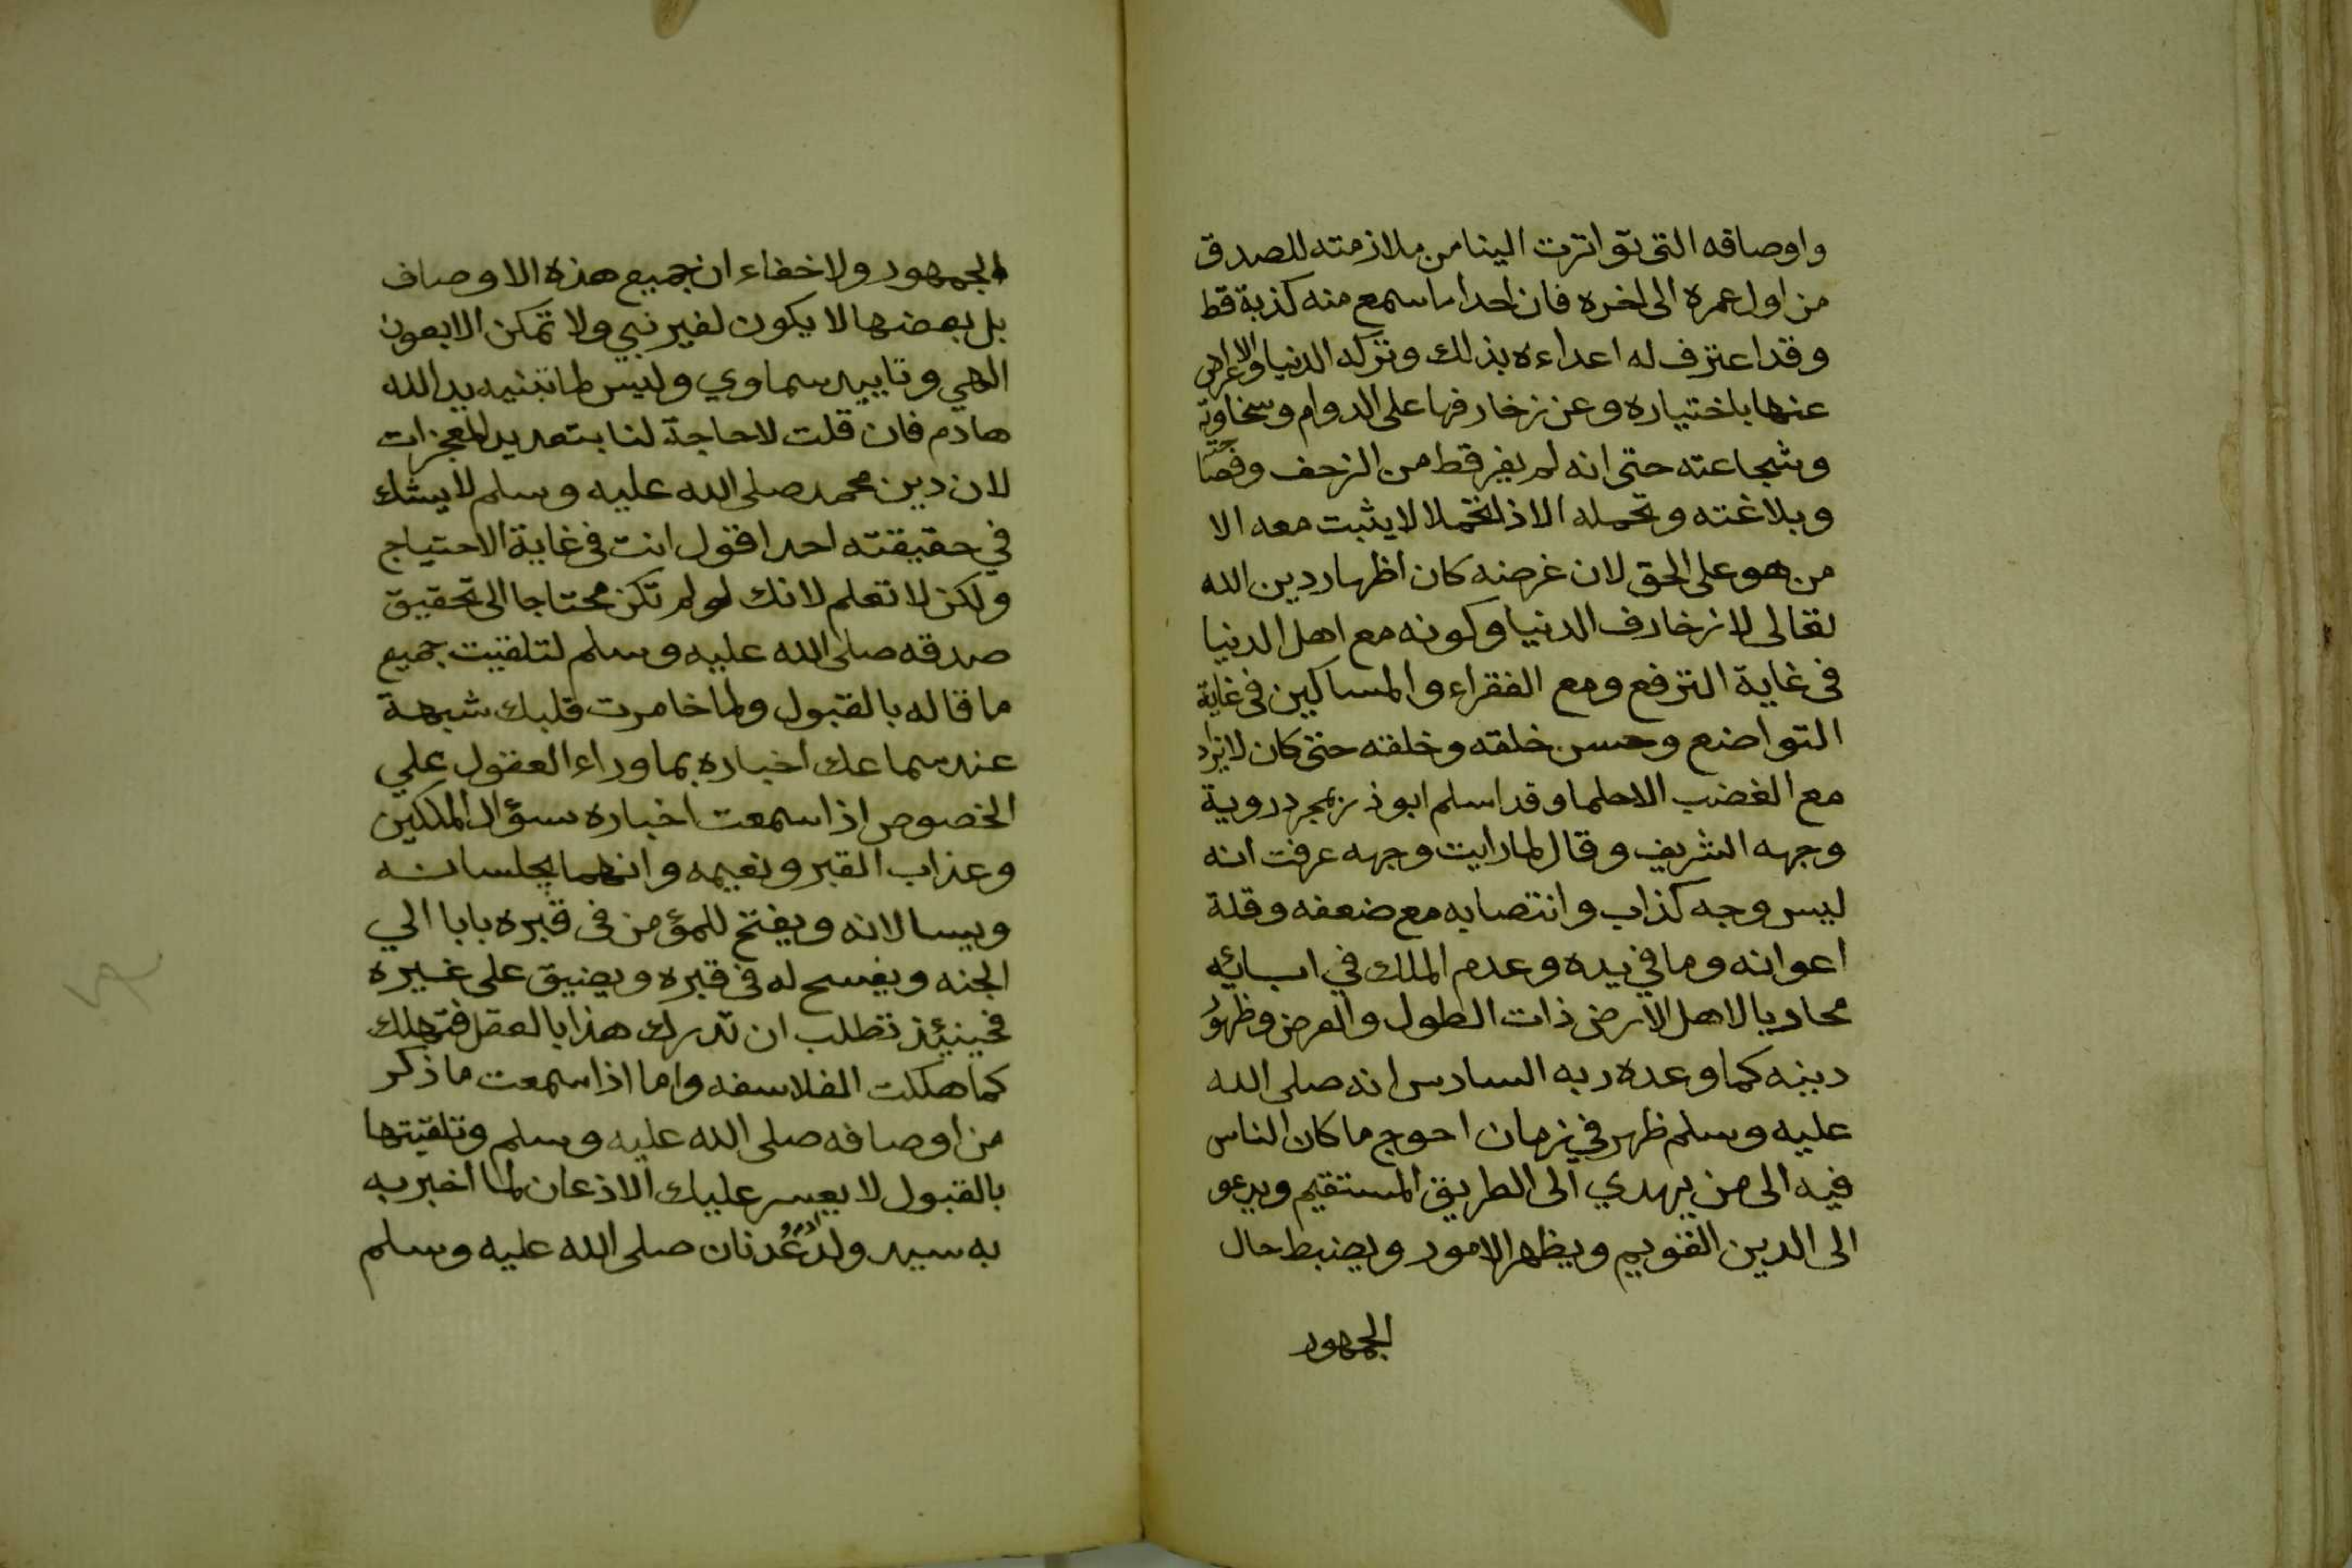 واوصافه التى تواترت الينا من ملازمته للصدق
من اول عمره الى اخره فان احدا ما سمع منه كذبة قط
وقد اعترف له اعداءه بذلك وتركه الدنيا والاعراض
عنها باختياره وعن زخارفها على الدوام وسخاوته
وشجاعته حتى انه لم يفر قط من الزحف وفصاحته
وبلاغته وتحمله الاذا تحملا لا يثبت معه الا
من هو على الحق لان غرضه كان اظهار دين الله
تعالى لا زخارف الدنيا وكونه مع اهل الدنيا
فى غاية الترفع ومع الفقراء والمساكين فى غاية
التواضع وحسن خلقه وخلقه حتى كان لا يزاد
مع الغضب الا حلما وقد اسلم ابو ذر بمجرد روية
وجهه الشريف وقال لما رايت وجهه عرفت انه
ليس وجه كذاب وانتصابه مع ضعفه وقلة
اعوانه وما في يده وعدم الملك في ابائه
محاربا لاهل الارض ذات الطول والعرض وظهور
دينه كما وعده ربه السادس انه صلى الله
عليه وسلم ظهر في زمان احوج ما كان الناس
فيه الى من يهدي الى الطريق المستقيم ويدعو
الى الدين القويم ويظهر الامور ويضبط حال
الجمهور
الجمهور ولا خفاء ان جميع هذه الاوصاف
بل بعضها لا يكون لغير نبي ولا تمكن الا بعون
الهي وتاييد سماوي وليس لما تبنيه يد الله
هادم فان قلت لا حاجة لنا بتعديد المعجزات
لان دين محمد صلى الله عليه وسلم لا يشك
في حقيقته احد اقول انت فى غاية الاحتياج
ولكن لا تعلم لانك لو لم تكن محتاجا الى تحقيق
صدقه صلى الله عليه وسلم لتلقيت جميع
ما قاله بالقبول ولما خامرت قلبك شبهة
عند سماعك اخباره بما وراء العقول علي
الخصوص اذا سمعت اخباره سؤال الملكين
وعذاب القبر ونعيمه وانهما يجلسانه
ويسالانه ويفتح للمؤمن فى قبره بابا الي
الجنه ويفسح له فى قبره ويضيق على غيره
فحينئذ تطلب ان تدرك هذا بالعقل فتهلك
كما هلكت الفلاسفه واما اذا سمعت ما ذكر
من اوصافه صلى الله عليه وسلم وتلقيتها
بالقبول لا يعسر عليك الاذعان لما اخبر به
به سيد ولد عدنان صلى الله عليه وسلم